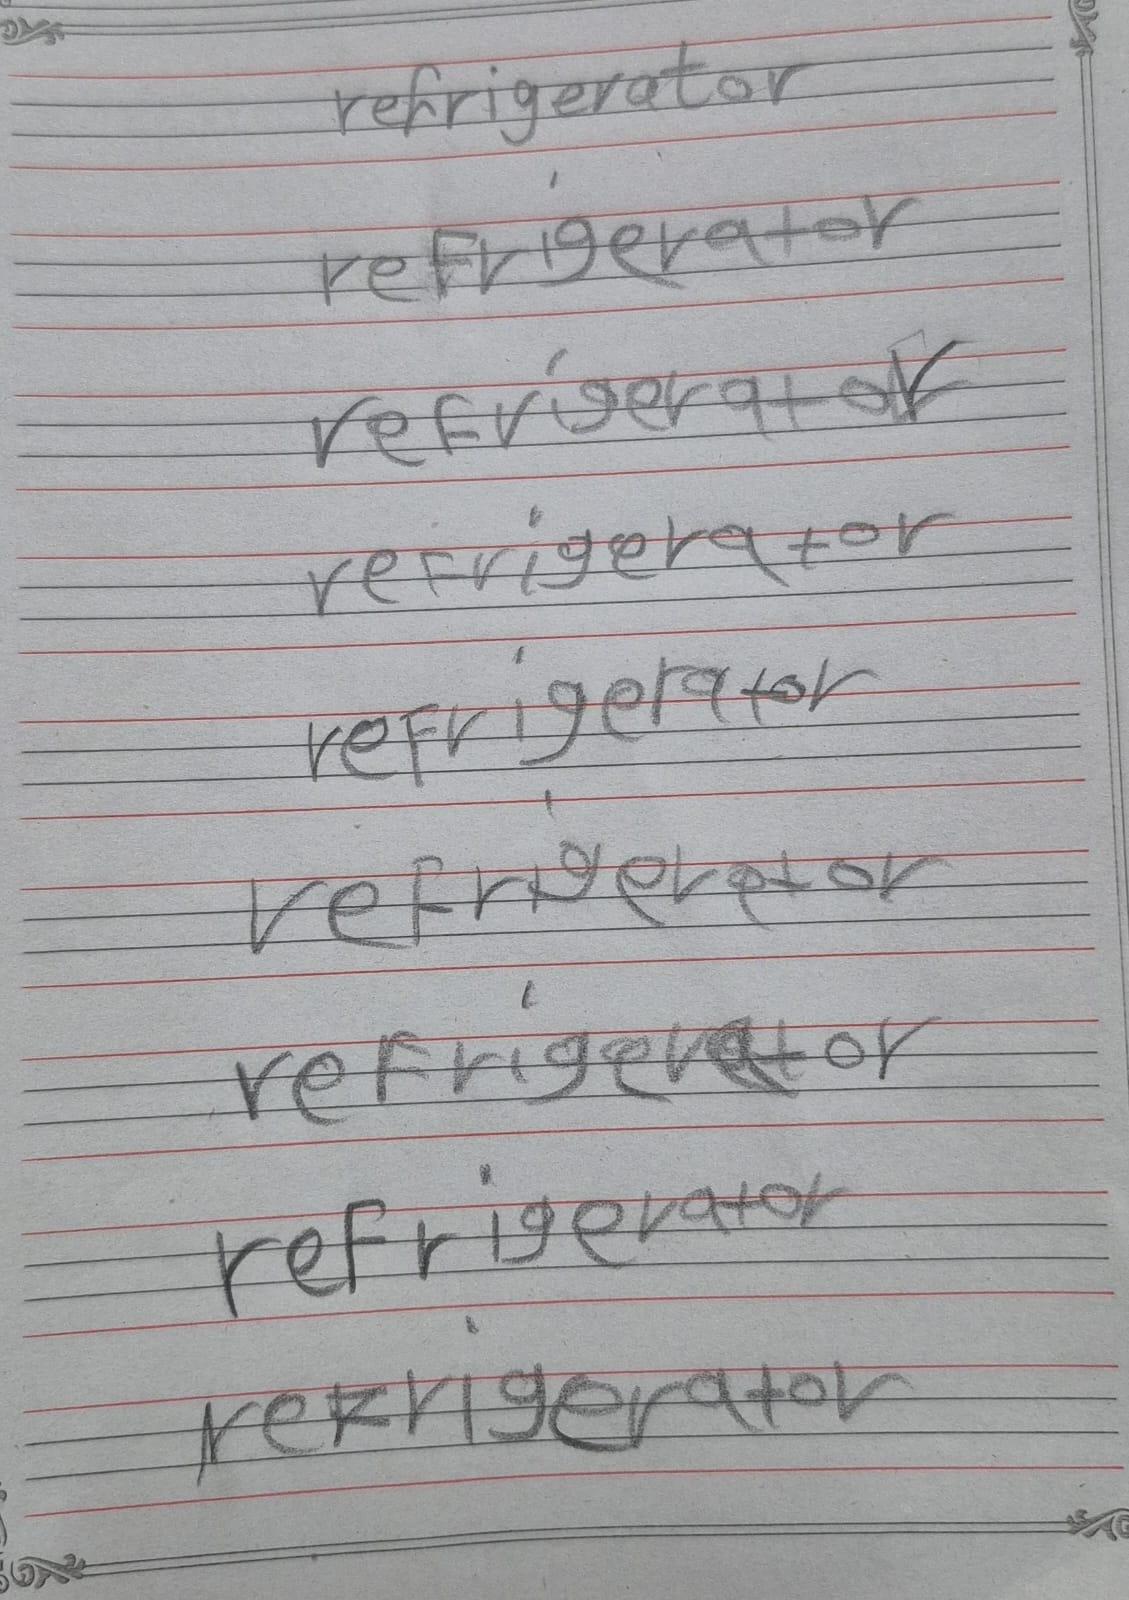 refrigerator
refrigerator
refrigerator
refrigerator
refrigerator
refrigerator
refrigerator
refrigerator
rekrigerator